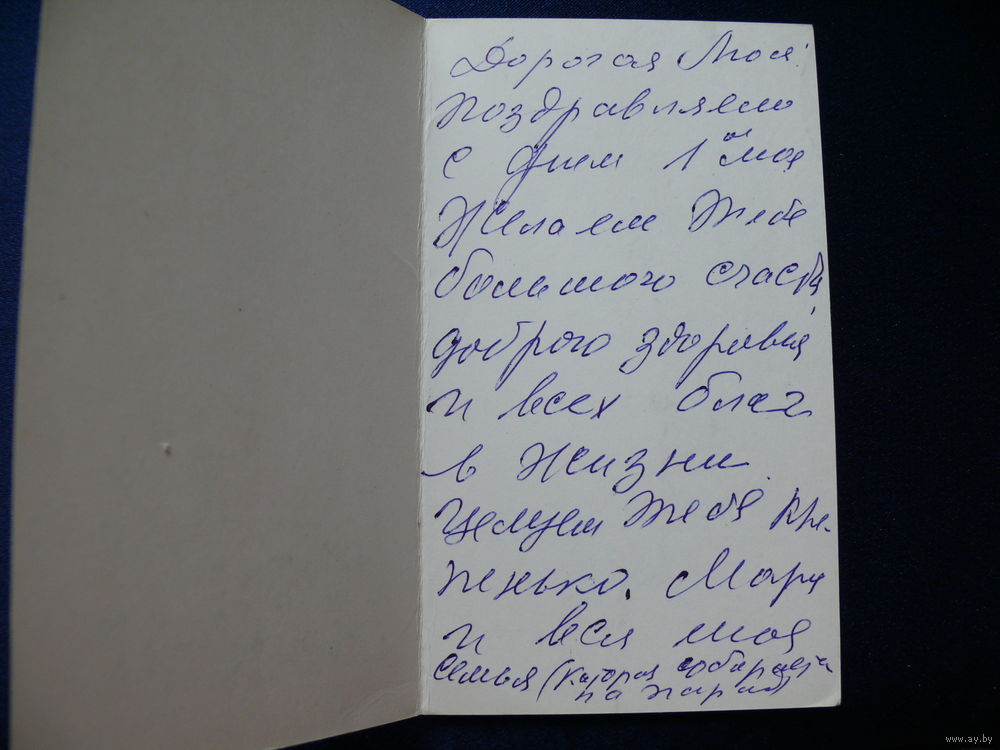 Дорогая Моя!
поздравляем
с днем 1ой мая
Желаем Тебе
большого счастья,
доброго здоровья
и всех благ
в жизни.
Целуем Тебя кре-
пенько. Мара
и вся моя
семья (которая собирается
на парад)
www.ay.by